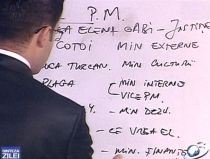 P.M.
ELENA GABI - JUSTIȚIE
COTOI MIN EXTERNE
UCA TURCAN. MIN CULTURII
PLAGA MIN INTERNE
VICE PM.
- MIN DEZV.
- CE VREA EL
- MIN. FINANȚE
SINTEZA
ZILEI